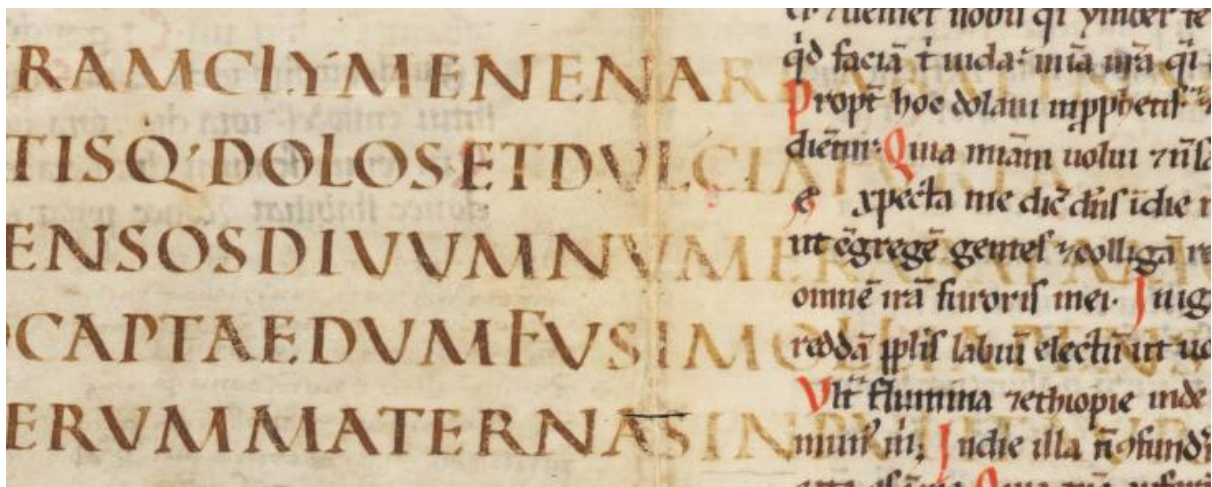 RAMCLYMENENAR
TISQ·DOLOSETDVLCIAFVRTA
ENSOSDIVUMNVMERABAT
OCAPTAEDUMFVSIMOLLIAPENS
ERVMMATERNASINP
ueniet nobis qi ymber te
qd faciā t iuda· mīa ūrā qi
Propt hoc dolaui in pphetis
Quia mīam uolui ⁊ n̄ sa
expecta me dic̄ dn̄s ī die r
ut ꝯgregē gentes ⁊ colligā re
omnē irā furoris mei·
reddā pplis labiū electū ut uo
Vlt flumina ⁊ethiopie inde
In die illa n̄ ꝯfund